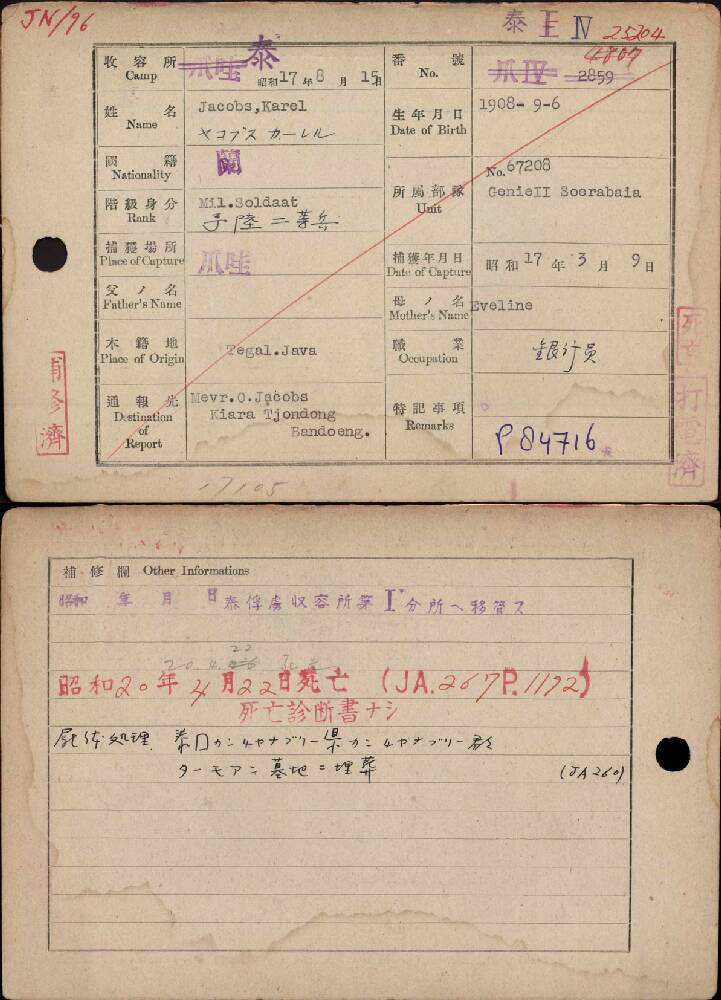 JN/96
泰 I IV 25204
4807
收容所 Camp 爪哇 泰 昭和17年8月15日
番號 No. 爪IV 2859
姓名 Name Jacobs,Karel
ヤコブス カーレル
生年月日 Date of Birth 1908- 9-6
國籍 Nationality 蘭
階級身分 Rank Mil.Soldaat
所属部隊 Unit No.67208
GenieII Soerabaia
捕獲場所 Place of Capture 爪哇
捕獲年月日 Date of Capture 昭和17年3月9日
父ノ名 Father's Name
母ノ名 Mother's Name Eveline
本籍地 Place of Origin Tegal.Java
職業 Occupation 銀行員
通報先 Destination of Report Mevr.O.Jacobs
Kiara Tjondong
Bandoeng.
特記事項 Remarks P 84716
補修濟
死亡打電濟
17105
補修欄 Other Informations
昭和 年 月 日泰俘虜収容所第I分所ヘ移管ス
22
昭和20年4月22日死亡 (JA.267P.1172)
死亡診断書ナシ
屍体処理 泰国カンチヤナブリー県カンチヤナブリー郡
ターモアン墓地ニ埋葬 (JA260)